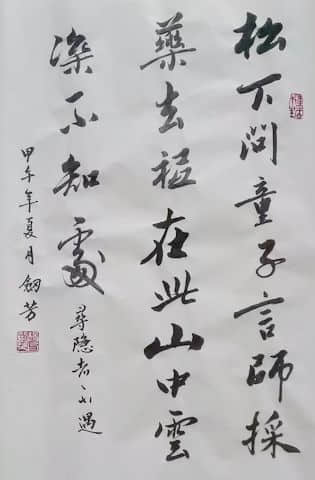 松下問童子言師採
藥去祗在此山中雲
深不知處
尋隐者不遇
甲午年夏月芳